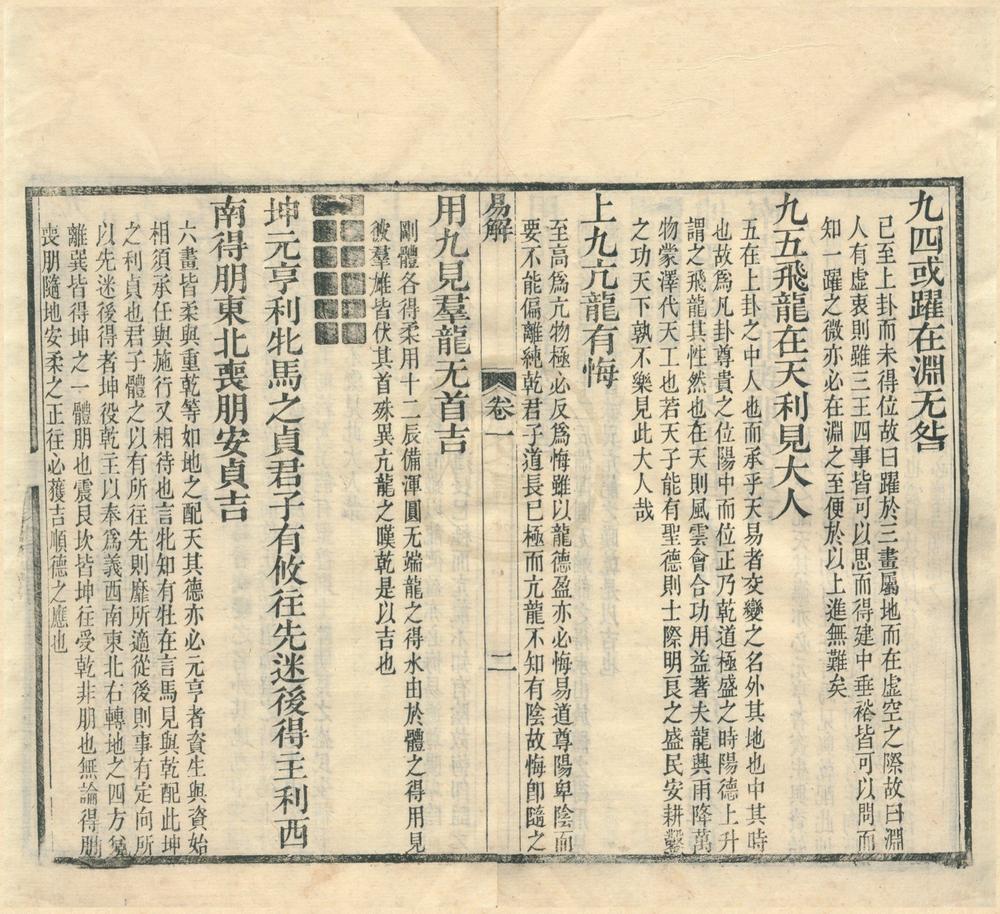 九四或躍在淵无咎
已至上卦而未得位故曰躍於三畫屬地而在虛空之際故曰淵
人有虛衷則雖三王四事皆可以思而得建中垂裕皆可以問而
知一躍之微亦必在淵之至便於以上進無難矣
九五飛龍在天利見大人
五在上卦之中人也而承乎天易者交變之名外其地也中其時
也故爲凡卦尊貴之位陽中而位正乃乾道極盛之時陽德上升
謂之飛龍其性然也在天則風雲會合功用益著夫龍興雨降萬
物蒙澤代天工也若天子能有聖德則士際明良之盛民安耕鑿
之功天下孰不樂見此大人哉
上九亢龍有悔
至高爲亢物極必反爲悔雖以龍德盈亦必悔易道尊陽卑陰而
要不能偏離純乾君子道長已極而亢龍不知有陰故悔卽隨之
易解
卷一
二
用九見羣龍无首吉
剛體各得柔用十二辰備渾圓无端龍之得水由於體之得用見
彼羣雄皆伏其首殊異亢龍之嘆乾是以吉也
坤元亨利牝馬之貞君子有攸往先迷後得主利西
南得朋東北喪朋安貞吉
六畫皆柔與重乾等如地之配天其德亦必元亨者資生與資始
相須承任與施行又相待也言牝知有牡在言馬見與乾配此坤
之利貞也君子體之以有所往先則靡所適從後則事有定向所
以先迷後得者坤役乾主以奉爲義西南東北右轉地之四方兌
離巽皆得坤之一體朋也震艮坎皆坤往受乾非朋也無論得朋
喪朋隨地安柔之正往必獲吉順德之應也